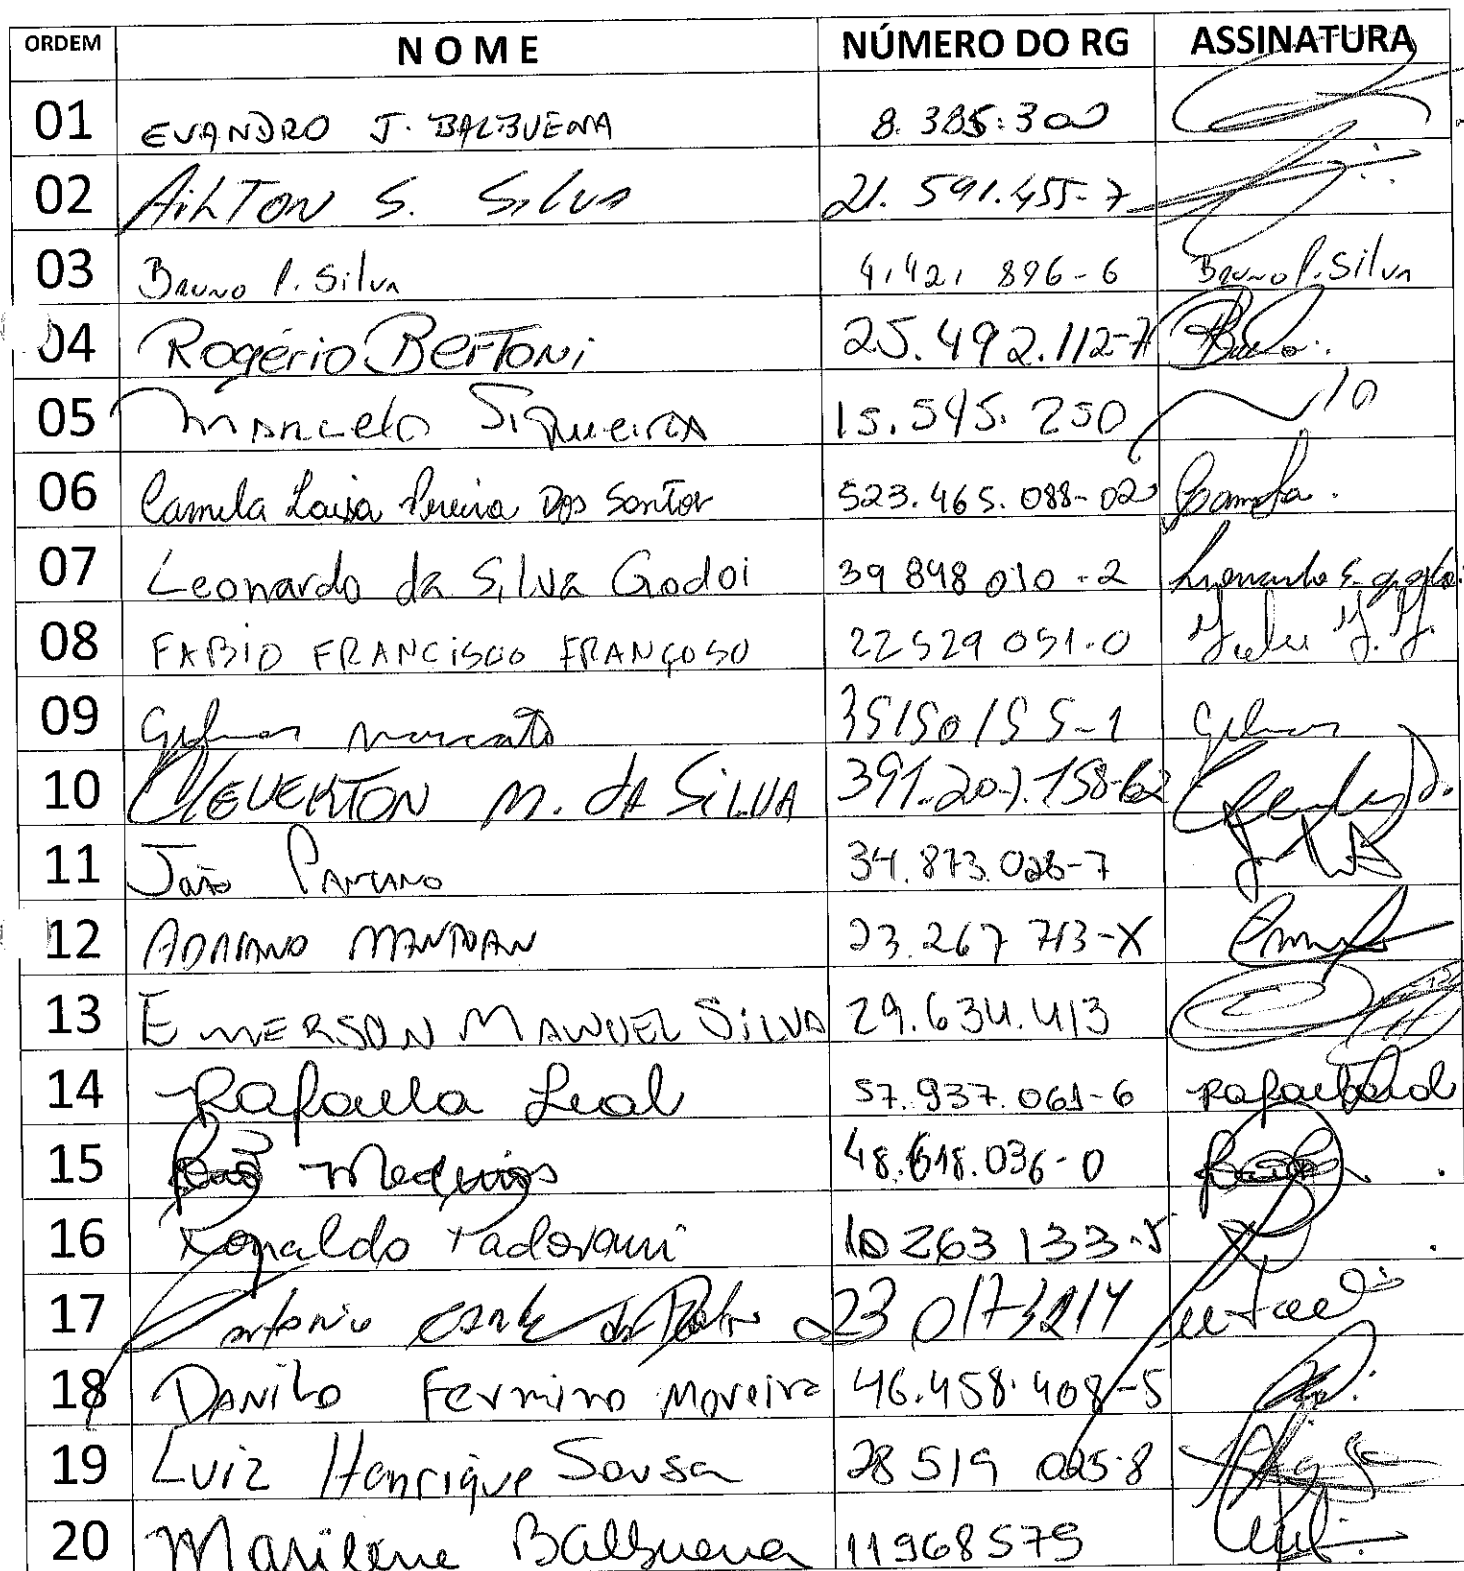 ORDEM NOME NÚMERO DO RG ASSINATURA
01 EVANDRO J. BALBUENA 8.385.300
02 AILTON S. SILVA 21.591.455-7
03 Bruno P. Silva 4,42, 896-6 Bruno P. Silva
04 Rogério Bertoni 25.492.112-7
05 Marcelo Siqueira 15.545.250
06 Camila Laisa Pereira Dos Santos 523.465.088-02 Camila.
07 Leonardo da Silva Godoi 39 848 010-2 Leonardo S. Godoi
08 FABIO FRANCISCO FRANÇOSO 22 529 051-0
09 Gilmar 35150155-1 Gilmar
10 CLEVERTON M. dA SILVA 391.207.158-62
11 João PANTANO 34.873.028-7
12 ADRIANO MANTOAN 23.267 713-X
13 EMERSON MANUEL SILVA 29.634.413
14 Rafaela Leal 57.937.061-6 Rafaela Leal
15 Medeiros 48.618.036-0
16 Ronaldo Padovani 10 263 133-5
17 Antonio 23 0173214
18 DANILO Fermino Moreira 46.458.408-5
19 Luiz Henrique Sousa 28 519 025-8
20 Marilene Balbuena 11968579